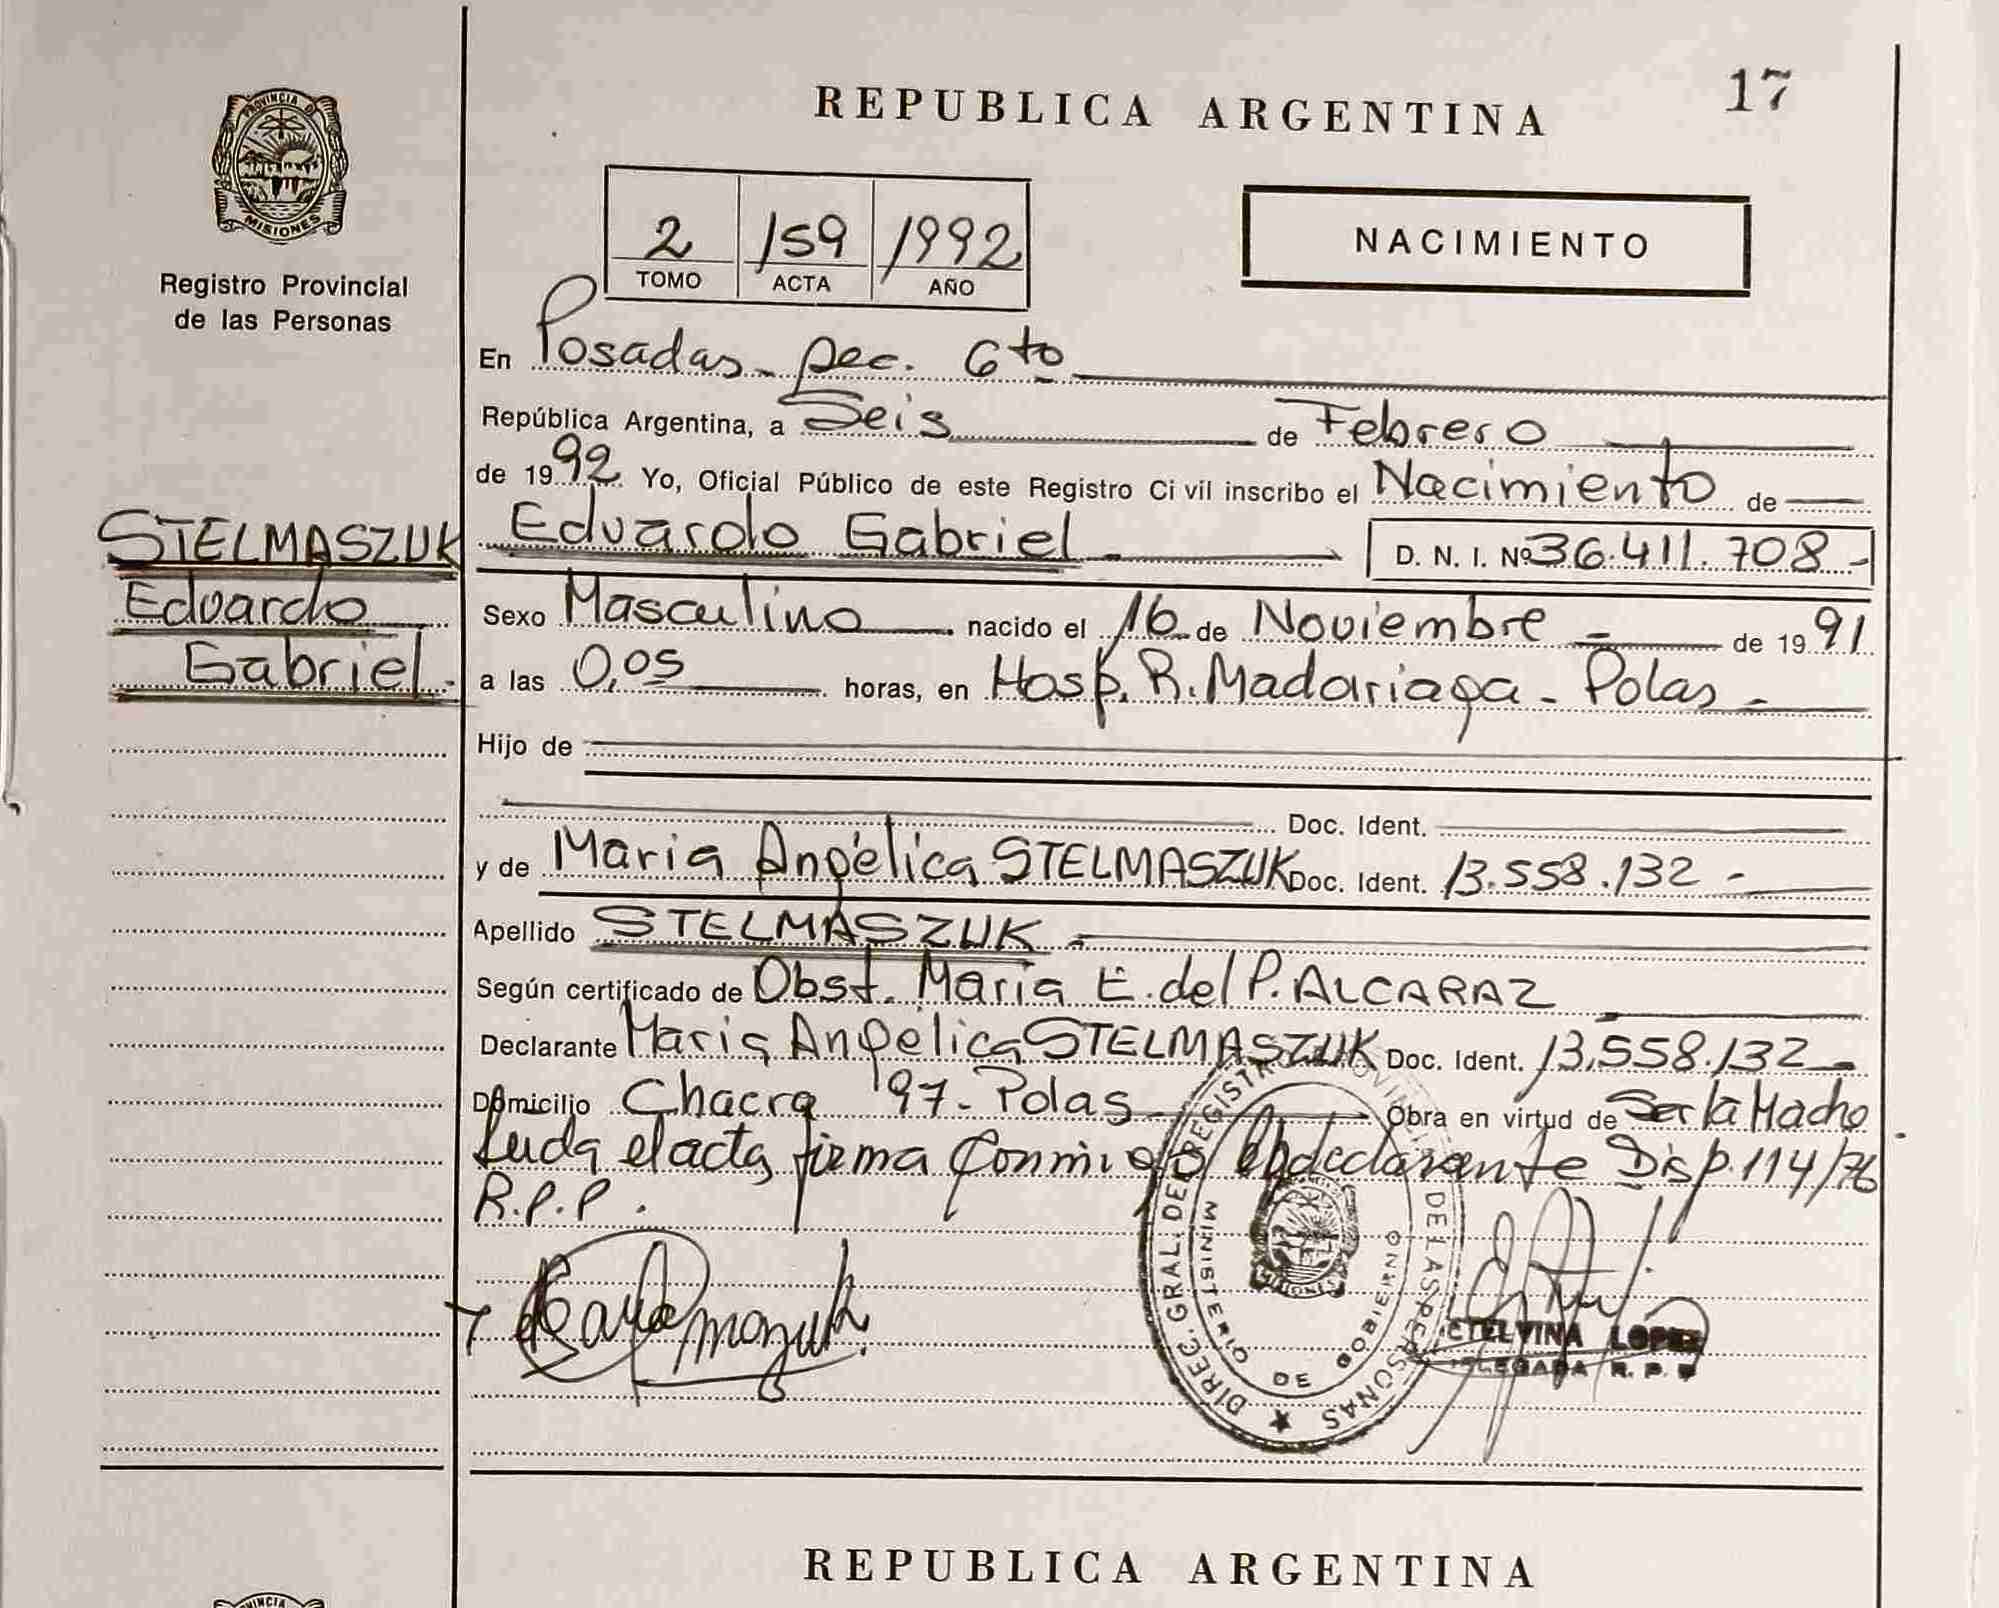 REPUBLICA ARGENTINA
17
PROVINCIA DE
MISIONES
Registro Provincial
de las Personas
2 159 1992
TOMO ACTA AÑO
NACIMIENTO
En Posadas - Sec. 6to
República Argentina, a Seis de Febrero
de 1992 Yo, Oficial Público de este Registro Civil inscribo el Nacimiento de
STELMASZUK
Eduardo
Gabriel.
Eduardo Gabriel - D. N. I. Nº 36.411.708.-
Sexo Masculino nacido el 16 de Noviembre - de 1991
a las 0,05 horas, en Hosp. R. Madariaga - Pdas -
Hijo de
Doc. Ident.
y de Maria Angélica STELMASZUK Doc. Ident. 13.558.132 -
Apellido STELMASZUK -
Según certificado de Obst. Maria E. del P. ALCARAZ
Declarante Maria Angélica STELMASZUK Doc. Ident. 13.558.132 -
Domicilio Chacra 97 - Pdas Obra en virtud de Ser la Madre
Leida el acta firma Conmigo declarante Disp. 114/76
R.P.P.
DIREC. GRAL. DEL REGISTRO PROVINCIAL DE LAS PERSONAS
MINISTERIO DE GOBIERNO
LOPEZ
DELEGADA R. P. P.
REPUBLICA ARGENTINA
PROVINCIA